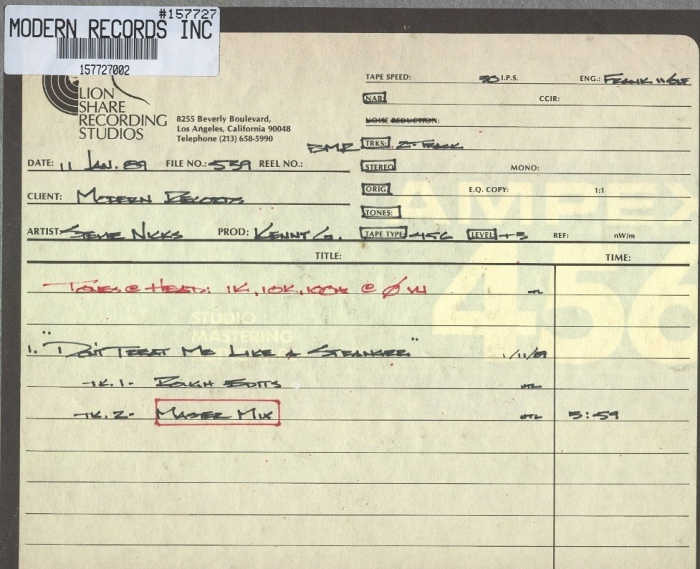 #157727
MODERN RECORDS INC
157727002
LION
SHARE
RECORDING
STUDIOS
8255 Beverly Boulevard,
Los Angeles, California 90048
Telephone (213) 658-5990
TAPE SPEED: 30 I.P.S. ENG.: FRANK WOLF
NAB: CCIR:
NOISE REDUCTION:
TRKS: 2-TRACK
STEREO MONO:
ORIG E.Q. COPY: 1:1
TONES:
DATE: 11 JAN. 89 FILE NO.: 539 REEL NO.:
CLIENT: MODERN RECORDS
ARTIST: STEVIE NICKS PROD: KENNY G. TAPE TYPE: 456 LEVEL: +3 REF: nW/m
TITLE: TIME:
TONES @ HEAD: 1K, 10K, 100~ @ Ø VU
1. "DON'T TREAT ME LIKE A STRANGER" 1/11/89
TK. 1- ROUGH EDITS
TK. 2- MASTER MIX 5:59
AMPEX
456
STUDIO
MASTERING